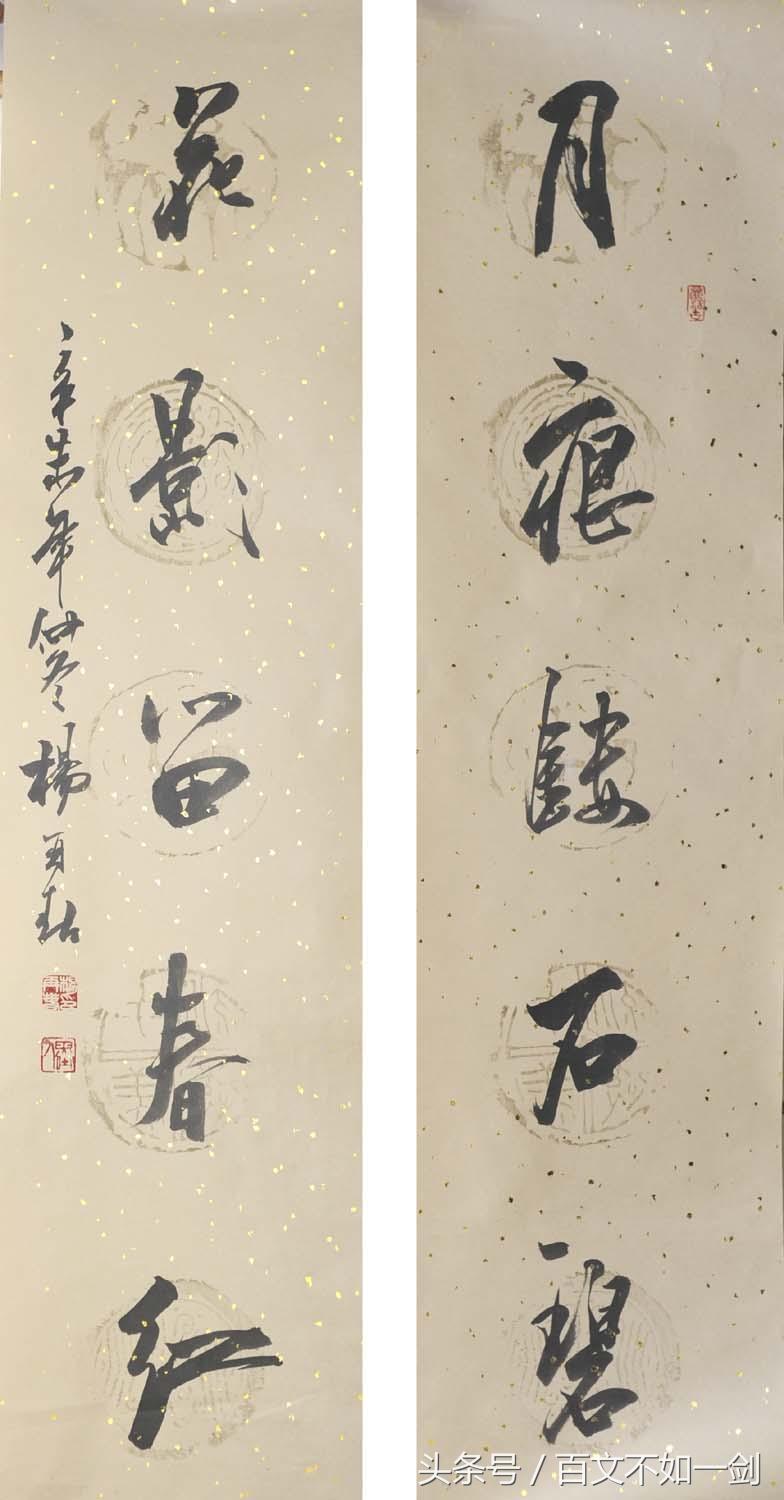 月痕鏤石碧
花影留春紅
辛未年仲冬楊再春
头条号 / 百文不如一剑